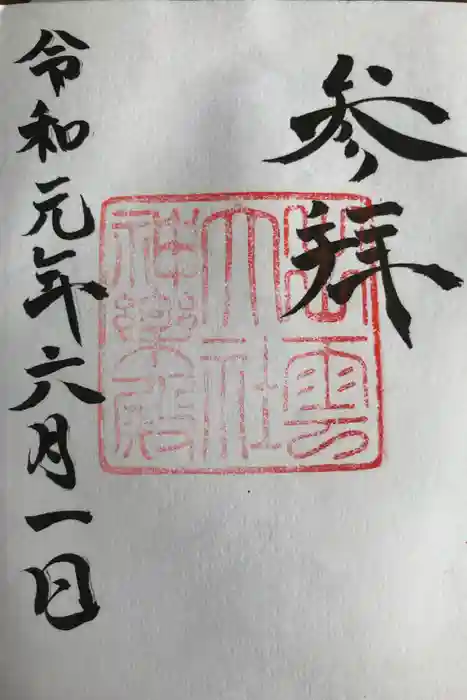 参拝
出雲
大社
神楽殿
令和元年六月一日